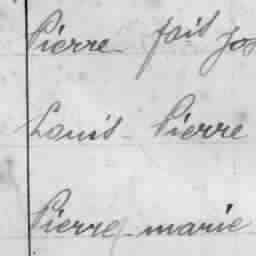 Pierre fait Jos
Louis Pierre
Pierre marie